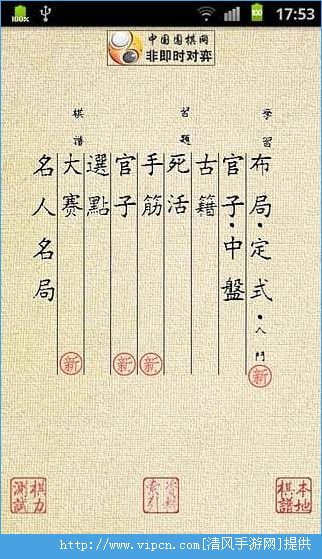 100%
17:53
中国围棋网
非即时对弈
學習
布局·定式·入門
新
官子·中盤
習題
古籍
死活
手筋
新
官子
新
選點
棋譜
大赛
新
名人名局
棋力測試
資料索引
本地棋譜
http://www.vipcn.com[清风手游网]提供